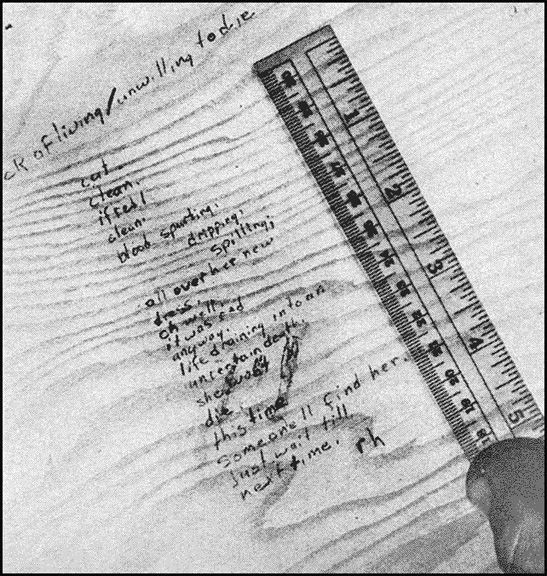 ck of living/unwilling to die
cut.
clean.
if red
clean.
blood spurting,
dripping,
spilling;
all over her new
dress.
oh well,
it was red
anyway.
life draining into an
uncertain death.
she won't
die.
this time
Someone'll find her.
Just wait till
next time.
rh
1
2
3
4
5